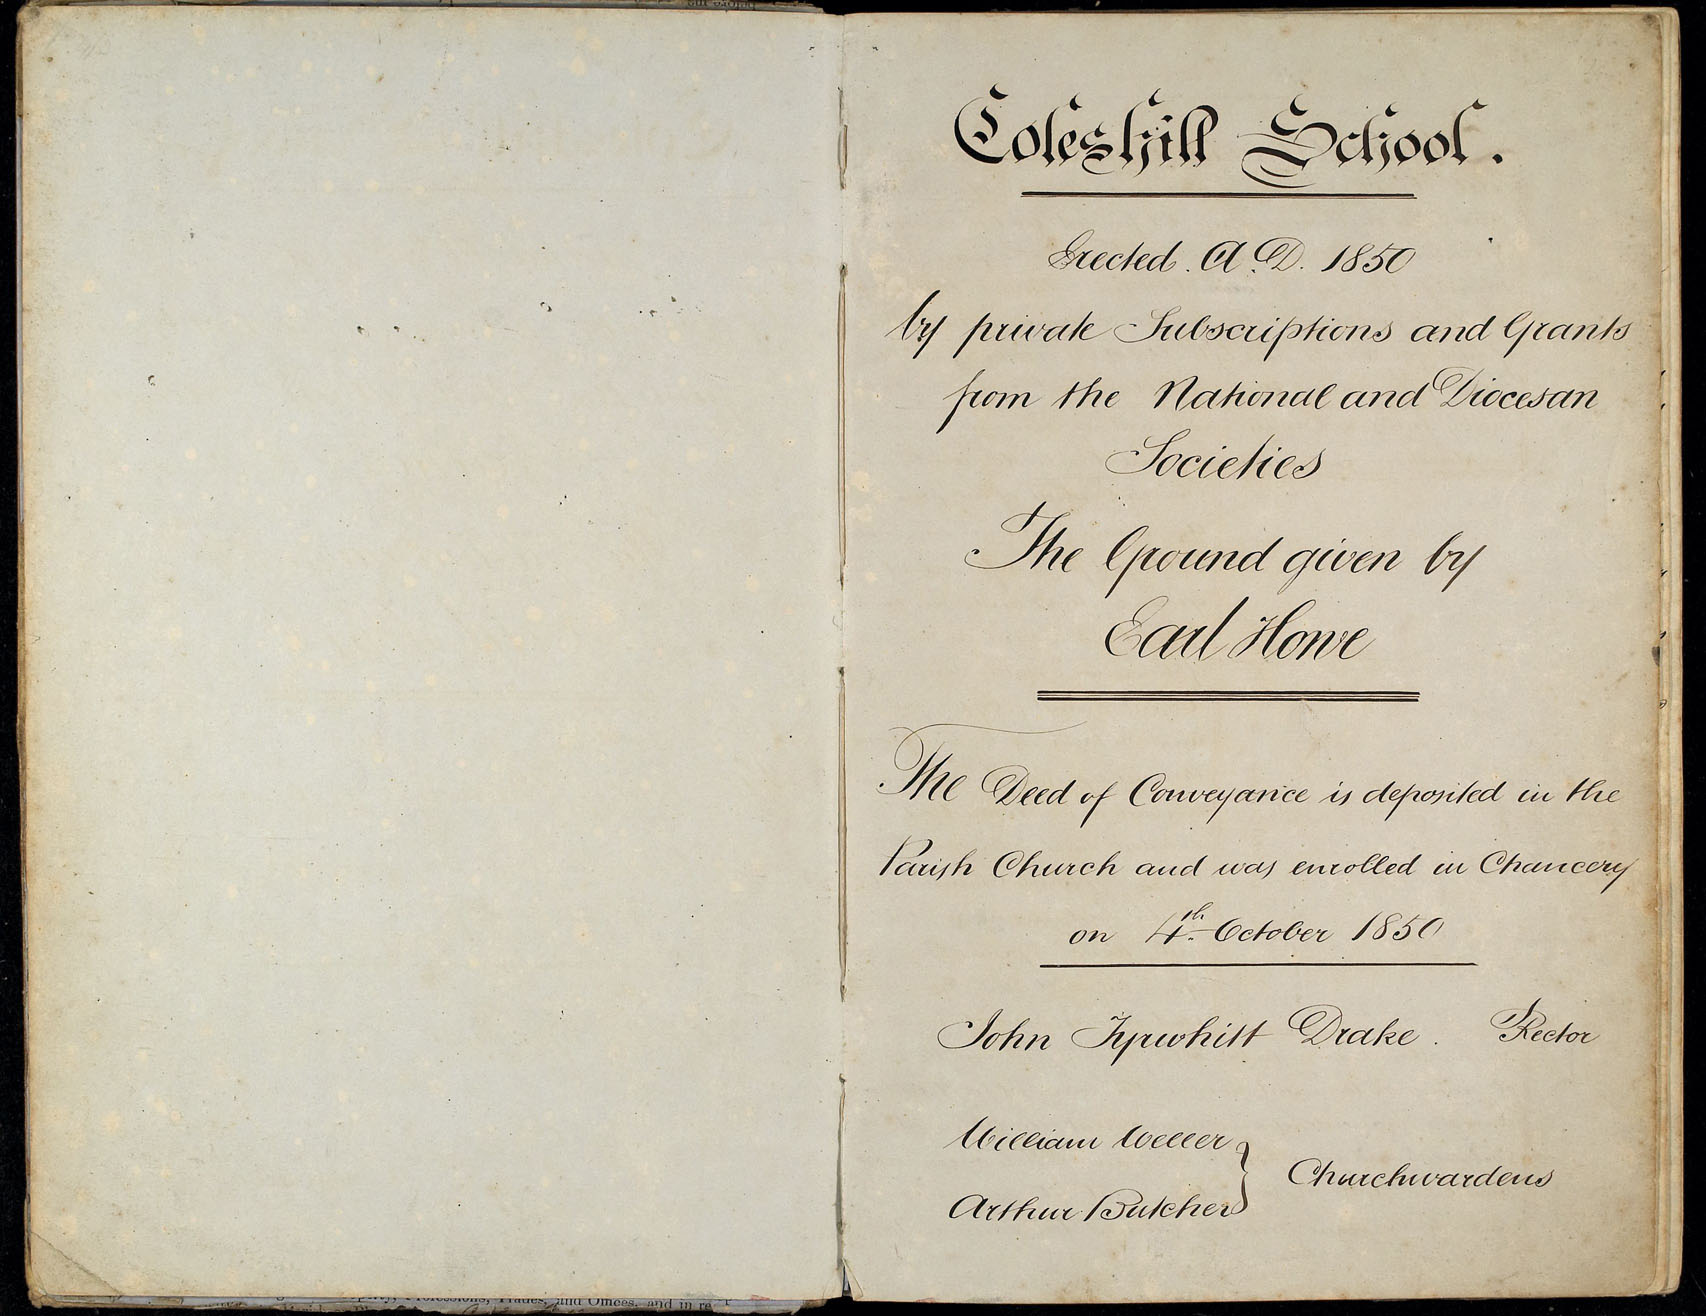 Coleshill School.
Erected. A.D. 1850
by private Subscriptions and Grants
from the National and Diocesan
Societies
The Ground given by
Earl Howe
The Deed of Conveyance is deposited in the
Parish Church and was enrolled in Chancery
on 4th October 1850
John Tyrwhitt Drake. Rector
William Weller
Arthur Butcher } Churchwardens
Professions, Trades, and Offices, and in re